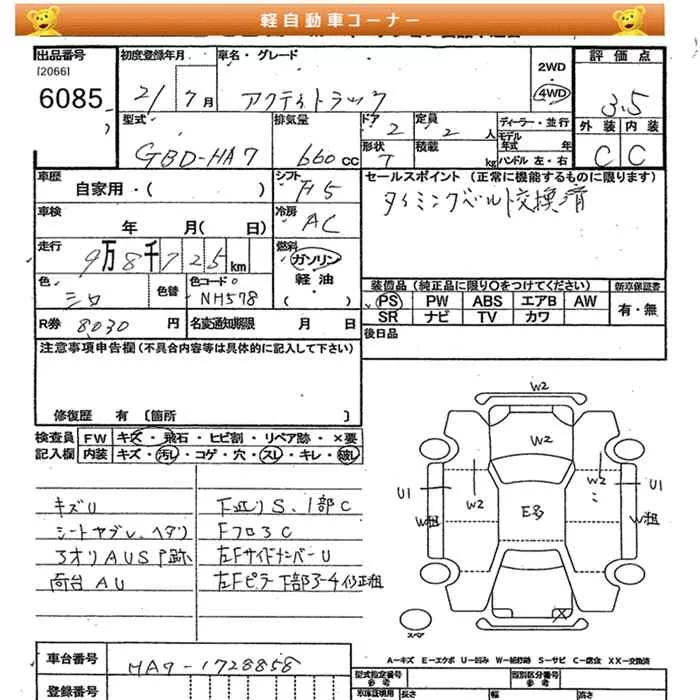 軽自動車コーナー
出品番号 初度登録年月 車名・グレード 2WD 評価点
[2066]
6085 21 7月 アクティトラック 4WD 3.5
型式 排気量 ドア 定員 ディーラー・並行 外装 内装
GBD-HA7 660cc 2 2人 モデル年式 年 C C
形状 積載 kg ハンドル 左・右
T
車歴 シフト セールスポイント(正常に機能するものに限ります)
自家用・( ) F5 タイミングベルト交換済
車検 冷房
年 月( 日) AC
走行 燃料
9万8千725km ガソリン
軽油
色 色替 色コード ( ) 装備品(純正品に限り○をつけてください) 新車保証書
シロ NH578 PS PW ABS エアB AW 有・無
R券 8030円 名変通知期限 月 日 SR ナビ TV カワ
注意事項申告欄(不具合内容等は具体的に記入して下さい) 後日品
修復歴 有 〔箇所 〕
検査員 FW キズ・飛石・ヒビ割・リペア跡・×要
記入欄 内装 キズ・汚し・コゲ・穴・スレ・キレ・破れ
キズU 下廻りS、1部C
シートヤブレ、ヘタリ FフロアC
3オリAUSP跡 左FサイドメンバーU
荷台AU 左Fピラー下部3-4修正粗
W2
W2
U1 W2 W2 U1
W粗 E多 W粗
スペア
A-キズ E-エクボ U-凹み W-補修跡 S-サビ C-腐食 XX-交換済
車台番号 HA7-1728858 型式指定番号 類別区分番号
参考 参考
登録番号 長さ 幅 高さ